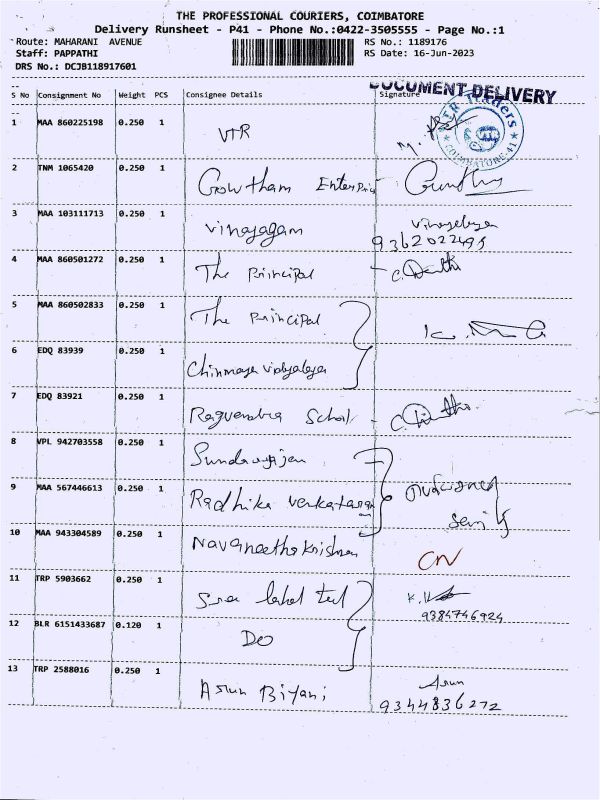 THE PROFESSIONAL COURIERS, COIMBATORE
Delivery Runsheet - P41 - Phone No.:0422-3505555 - Page No.:1
Route: MAHARANI AVENUE RS No.: 1189176
Staff: PAPPATHI RS Date: 16-Jun-2023
DRS No.: DCJB118917601
DOCUMENT DELIVERY
S No Consignment No Weight PCS Consignee Details Signature
1 MAA 860225198 0.250 1 VTR
VTR Traders COIMBATORE-41
2 TNM 1065420 0.250 1 Gowtham Enterprise
3 MAA 103111713 0.250 1 Vinayagam
9362022495
4 MAA 860501272 0.250 1 The Principal
5 MAA 860502833 0.250 1 The Principal
6 EDQ 83939 0.250 1 Chinmaya vidyalaya
7 EDQ 83921 0.250 1 Ragvendra School
8 VPL 942703558 0.250 1
9 MAA 567446613 0.250 1 Radhika Venkataraman
10 MAA 943304589 0.250 1 Navaneetha Krishnan CN
11 TRP 5903662 0.250 1 Sree
9384746924
12 BLR 6151433687 0.120 1 Do
13 TRP 2588016 0.250 1 Arun Biyani Arun
9344836272